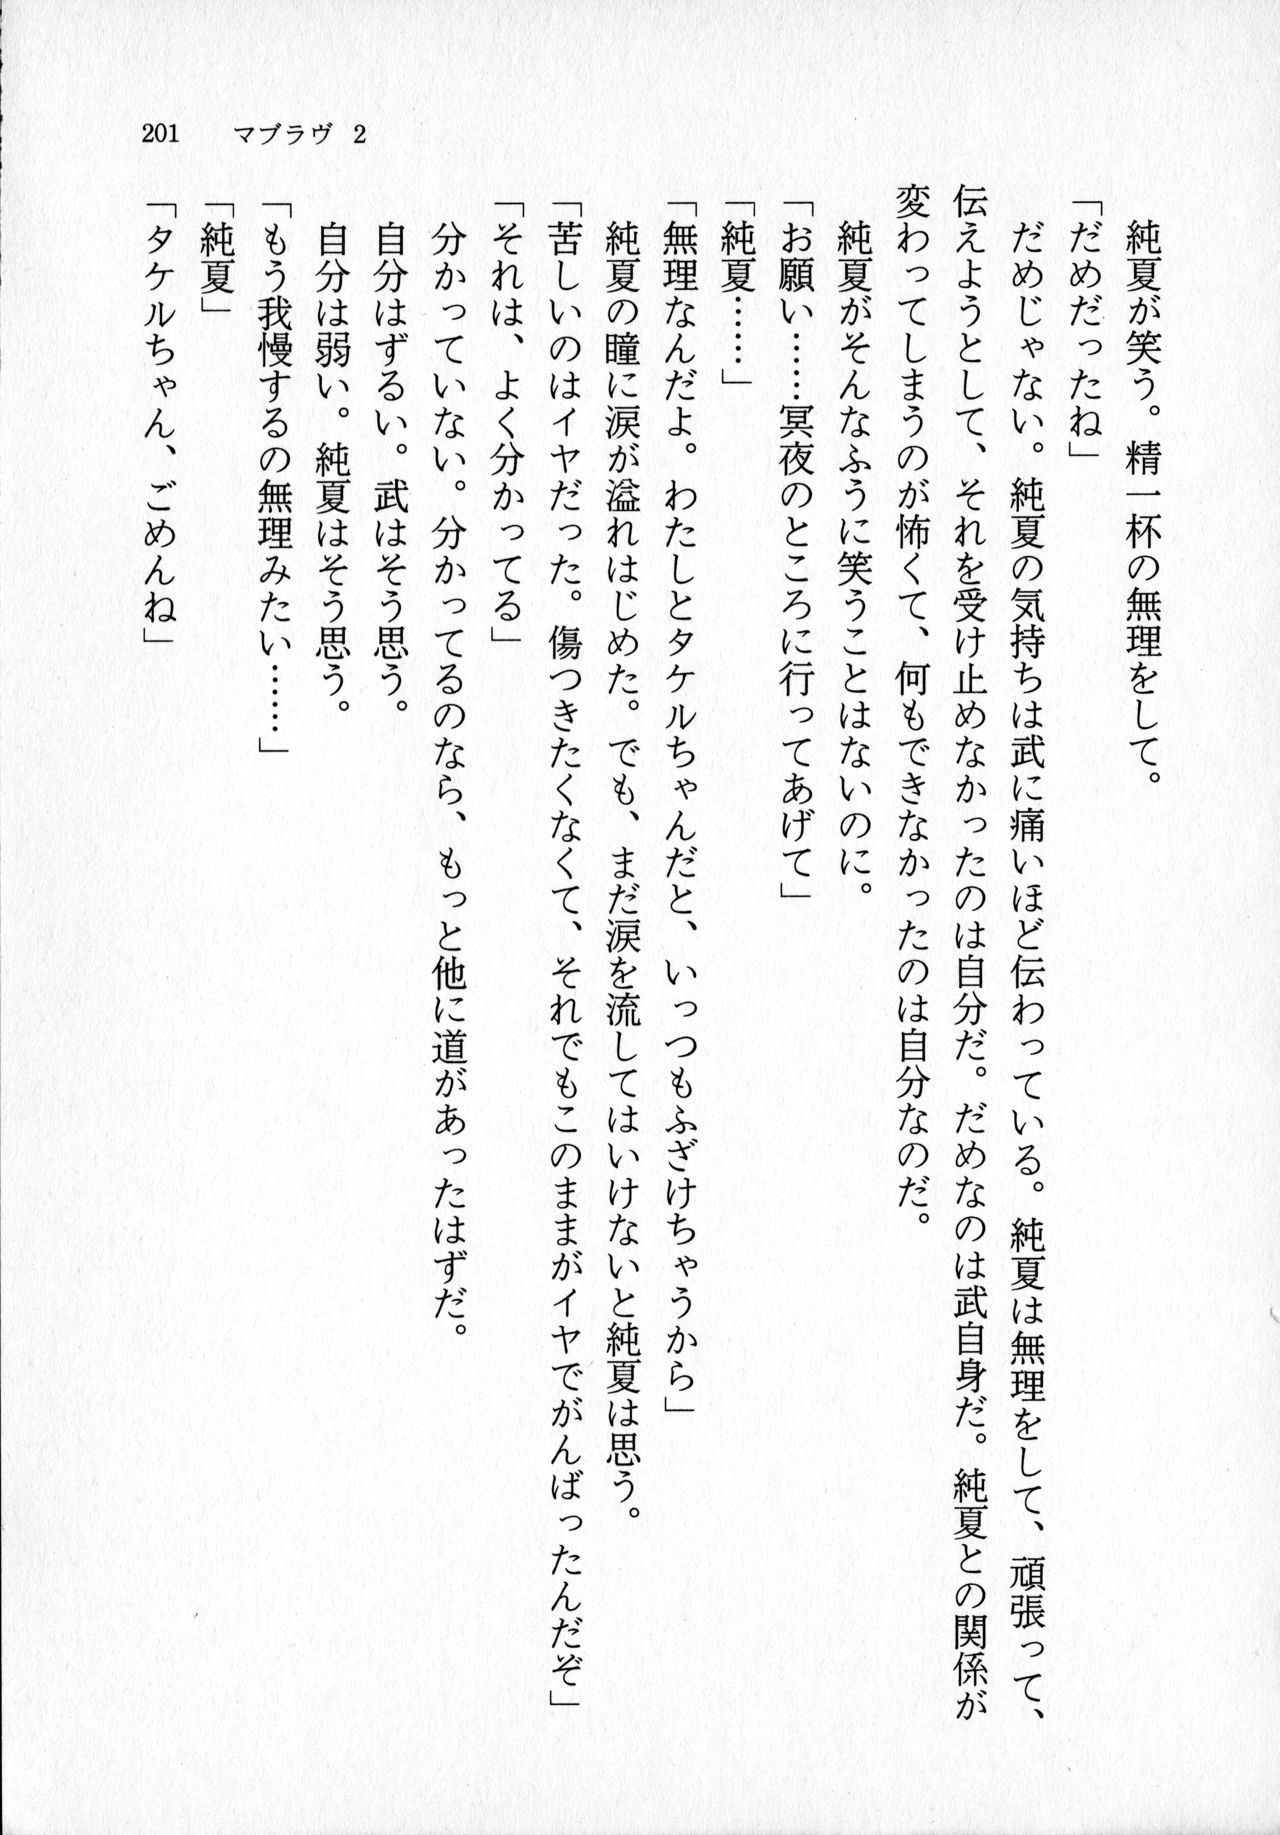 201　マブラヴ 2
　純夏が笑う。精一杯の無理をして。
「だめだったね」
　だめじゃない。純夏の気持ちは武に痛いほど伝わっている。純夏は無理をして、頑張って、
伝えようとして、それを受け止めなかったのは自分だ。だめなのは武自身だ。純夏との関係が
変わってしまうのが怖くて、何もできなかったのは自分なのだ。
　純夏がそんなふうに笑うことはないのに。
「お願い……冥夜のところに行ってあげて」
「純夏……」
「無理なんだよ。わたしとタケルちゃんだと、いっつもふざけちゃうから」
　純夏の瞳に涙が溢れはじめた。でも、まだ涙を流してはいけないと純夏は思う。
「苦しいのはイヤだった。傷つきたくなくて、それでもこのままがイヤでがんばったんだぞ」
「それは、よく分かってる」
　分かっていない。分かってるのなら、もっと他に道があったはずだ。
　自分はずるい。武はそう思う。
　自分は弱い。純夏はそう思う。
「もう我慢するの無理みたい……」
「純夏」
「タケルちゃん、ごめんね」